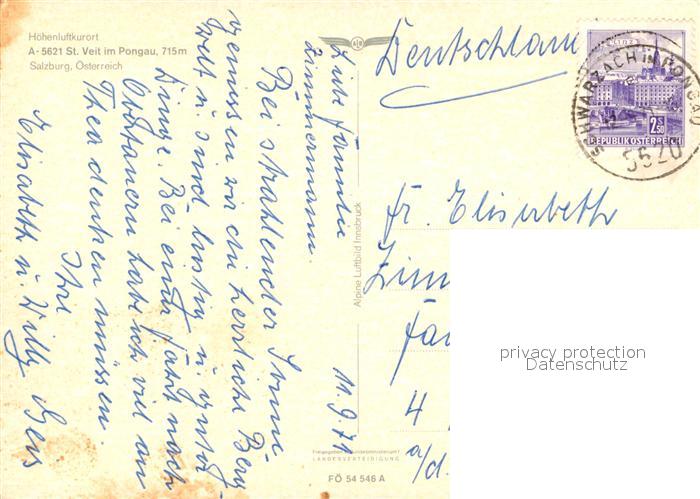 Höhenluftkurort
A-5621 St. Veit im Pongau, 715m
Salzburg, Österreich
11.9.71
Liebe Familie
Zimmermann.
Bei strahlender Sonne
genissen wir die herrliche Berg
welt u. sind lustig u. guter
Dinge. Bei einer Fahrt nach
Obertauern habe ich viel an
Thea denken müssen.
Ihre
Elisabeth u. Willy Geis
Alpine Luftbild Innsbruck
Deutschland
LINZ
2.50
REPUBLIK ÖSTERREICH
SCHWARZACH IM PONGAU
5620
Fr. Elisabeth
Zim
4
a/d.
privacy protection
Datenschutz
LANDESVERTEIDIGUNG
FÖ 54 546 A